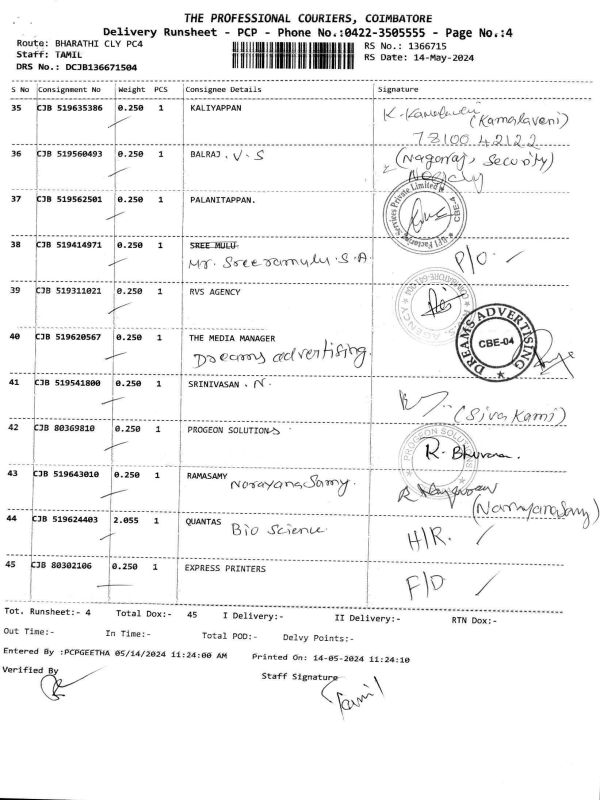 THE PROFESSIONAL COURIERS, COIMBATORE
Delivery Runsheet - PCP - Phone No.:0422-3505555 - Page No.:4
Route: BHARATHI CLY PC4
RS No.: 1366715
Staff: TAMIL
RS Date: 14-May-2024
DRS No.: DCJB136671504
S No Consignment No Weight PCS Consignee Details Signature
35 CJB 519635386 0.250 1 KALIYAPPAN
(Kamalaveni)
78100 42122
36 CJB 519560493 0.250 1 BALRAJ. V. S (Nagaraj, Security)
37 CJB 519562501 0.250 1 PALANITAPPAN.
Factoring Services Private Limited
CBE-4
38 CJB 519414971 0.250 1 SREE MULU
Mr. Sreeramulu. S. A. P/O.
39 CJB 519311021 0.250 1 RVS AGENCY
AGENCY
40 CJB 519620567 0.250 1 THE MEDIA MANAGER
Dreams advertising.
DREAMS ADVERTISING
CBE-04
41 CJB 519541800 0.250 1 SRINIVASAN. N.
(Siva Kami)
42 CJB 80369810 0.250 1 PROGEON SOLUTIONS
PROGEON SOLUTIONS
R. Bhuvana.
43 CJB 519643010 0.250 1 RAMASAMY
Narayana Samy.
(Narayanasamy)
44 CJB 519624403 2.055 1 QUANTAS
Bio Science H/R.
45 CJB 80302106 0.250 1 EXPRESS PRINTERS
F/D
Tot. Runsheet:- 4 Total Dox:- 45 I Delivery:- II Delivery:- RTN Dox:-
Out Time:- In Time:- Total POD:- Delvy Points:-
Entered By :PCPGEETHA 05/14/2024 11:24:00 AM Printed On: 14-05-2024 11:24:10
Verified By
Staff Signature
Tamil